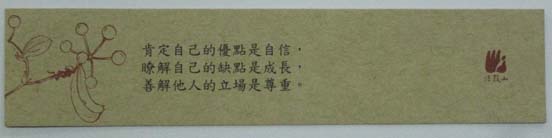 肯定自己的優點是自信，
瞭解自己的缺點是成長，
善解他人的立場是尊重。
法鼓山